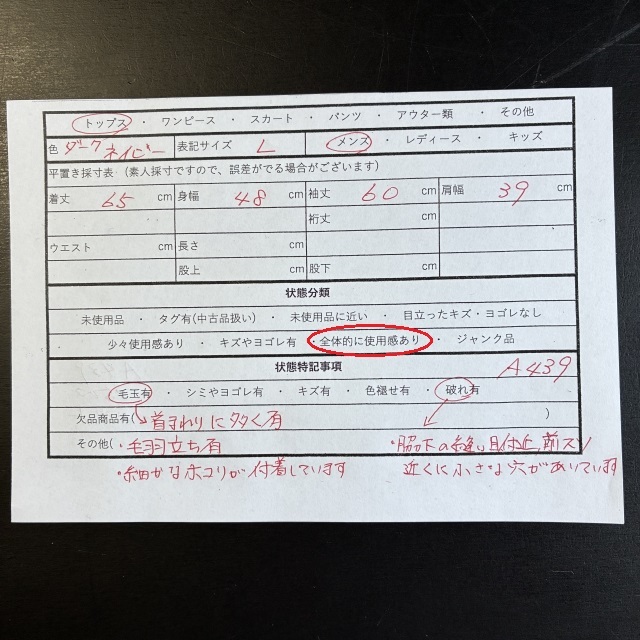 トップス ・ ワンピース ・ スカート ・ パンツ ・ アウター類 ・ その他
色 ダークネイビー 表記サイズ L メンズ ・ レディース ・ キッズ
平置き採寸表 (素人採寸ですので、誤差がでる場合がございます)
着丈 65 cm 身幅 48 cm 袖丈 60 cm 肩幅 39 cm
裄丈 cm
ウエスト cm 長さ cm
股上 cm 股下 cm
状態分類
未使用品 ・ タグ有(中古品扱い) ・ 未使用品に近い ・ 目立ったキズ・ヨゴレなし
少々使用感あり ・ キズやヨゴレ有 ・ 全体的に使用感あり ・ ジャンク品
状態特記事項 A439
毛玉有 ・ シミやヨゴレ有 ・ キズ有 ・ 色褪せ有 ・ 破れ有
欠品商品有( 首まわりに多く有 )
その他( ・毛羽立ち有 ・脇下の縫い目付近、前スソ
・細かなホコリが付着しています 近くに小さな穴があいています